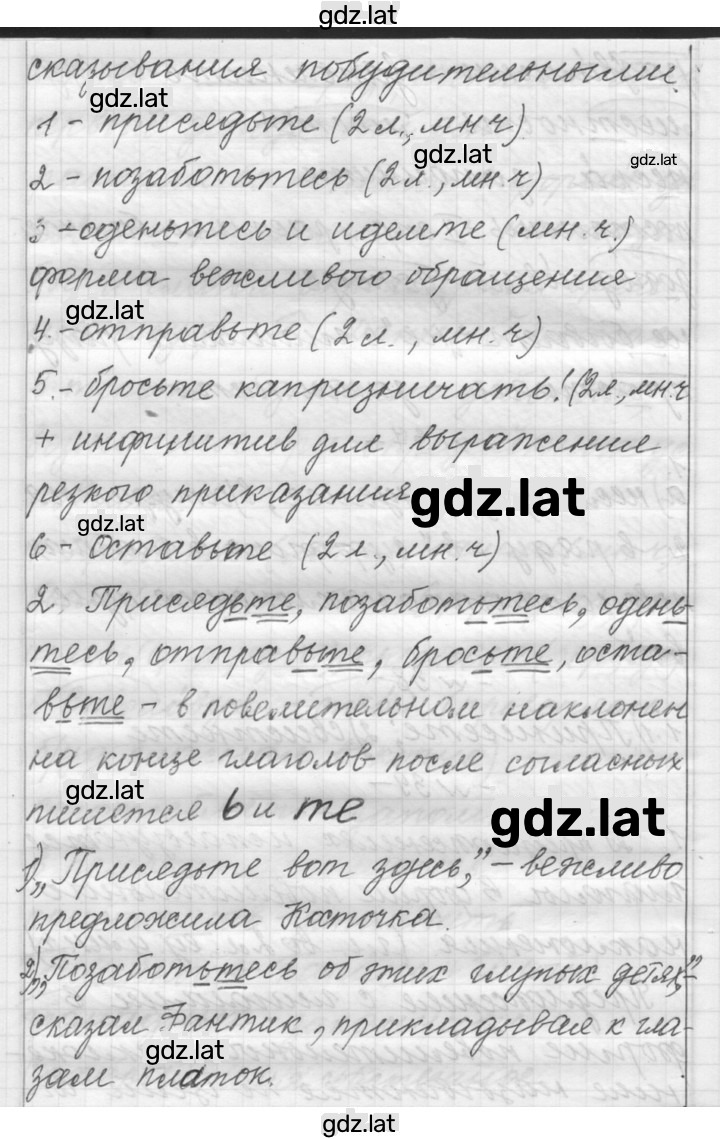 gdz.lat
сказывания побудительными.
gdz.lat
1 - присядьте (2 л., мн ч)
gdz.lat
gdz.lat
2 - позаботьтесь (2 л., мн. ч)
3 - оденьтесь и идемте (мн. ч.)
форма вежливого обращения
gdz.lat
4. - отправьте (2 л., мн. ч)
5. - бросьте капризничать! (2 л., мн. ч
+ инфинитив для выражения
резкого приказания
gdz.lat
gdz.lat
6 - Оставьте (2 л., мн. ч)
2. Присядьте, позаботьтесь, одень-
тесь, отправьте, бросьте, оста-
вьте - в повелительном наклонен
на конце глаголов после согласных
gdz.lat
пишется ь и те
gdz.lat
1) „Присядьте вот здесь,” - вежливо
предложила Касточка.
2) „Позаботьтесь об этих глупых детях,” -
сказал Фантик, прикладывая к гла-
gdz.lat
зам платок.
gdz.lat